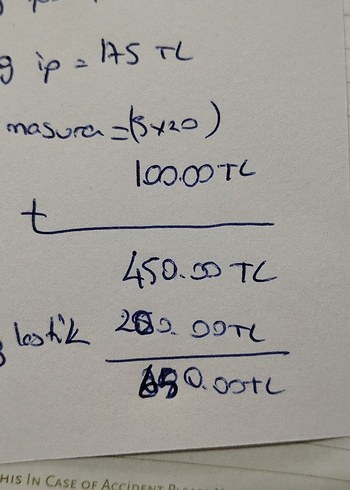 g ip = 175 TL
masura = (5x20)
100.00 TL
+
450.00 TL
lastik 200.00 TL
650.00 TL
THIS IN CASE OF ACCIDENT